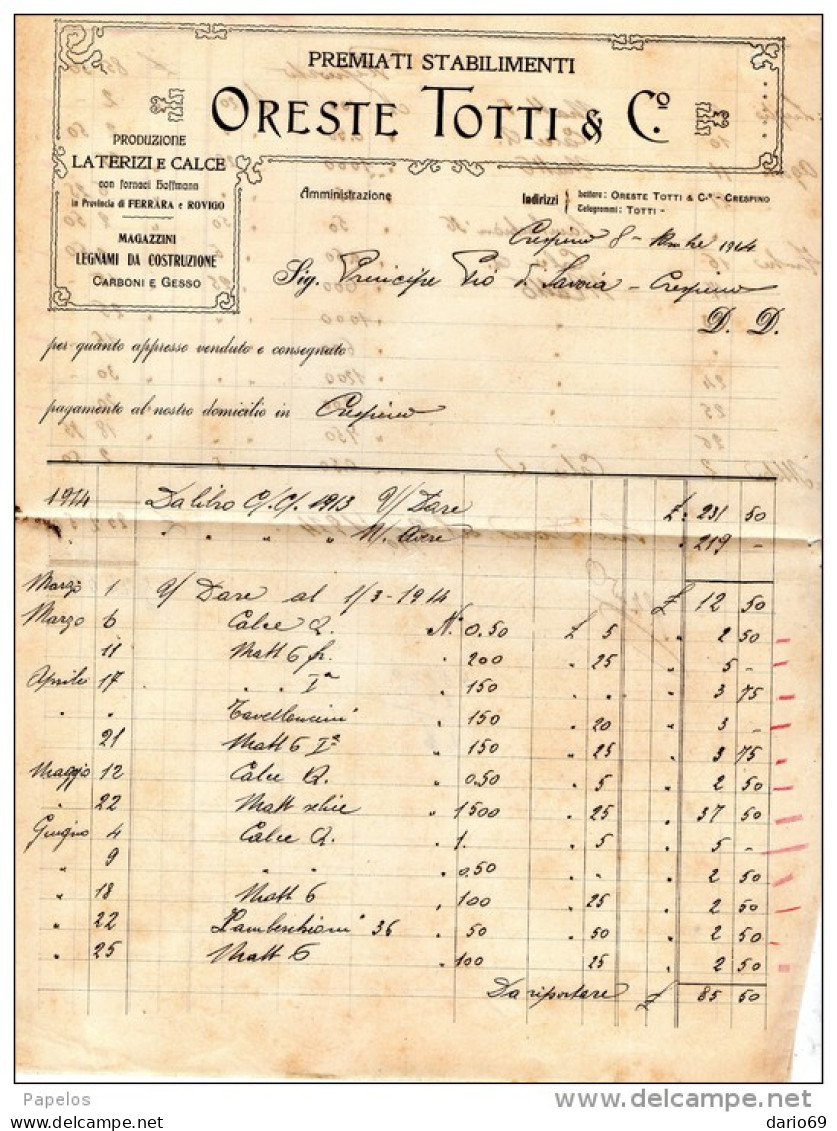 PREMIATI STABILIMENTI
ORESTE TOTTI & Cº
PRODUZIONE
LATERIZI E CALCE
con fornaci Hoffmann
in Provincia di FERRARA e ROVIGO
MAGAZZINI
LEGNAMI DA COSTRUZIONE
CARBONI E GESSO
Amministrazione
Indirizzi
Lettere: ORESTE TOTTI & Cº - CRESPINO
Telegrammi: TOTTI -
Crespino 8 - 1914
Sig. Principe Pio di Savoia - Crespino
D. D.
per quanto appresso venduto e consegnato
pagamento al nostro domicilio in Crespino
1914 Da libro C/C/. 1913 V/ Dare £. 231 50
" " " " N/. Avere " 219 -
Marzo 1 V/ Dare al 1/3-1914 £ 12 50
Marzo 6 Calce Q. Nº 0.50 £ 5 " 2 50
11 Matt 6 fr. " 200 " 25 " 5 -
Aprile 17 " " Iª " 150 " " " 3 75
" " Tavelloncini " 150 " 20 " 3 -
21 Matt 6 Iª " 150 " 25 " 3 75
Maggio 12 Calce Q. " 0.50 " 5 " 2 50
" 22 Matt " 1500 " 25 " 37 50
Giugno 4 Calce Q. " 1. " 5 " 5 -
" 9 " " " 0.50 " " " 2 50
" 18 Matt 6 " 100 " 25 " 2 50
" 22 36 " 50 " 50 " 2 50
" 25 Matt 6 " 100 25 " 2 50
Da riportare £ 85 50
Papelos
delcampe.net
dario69